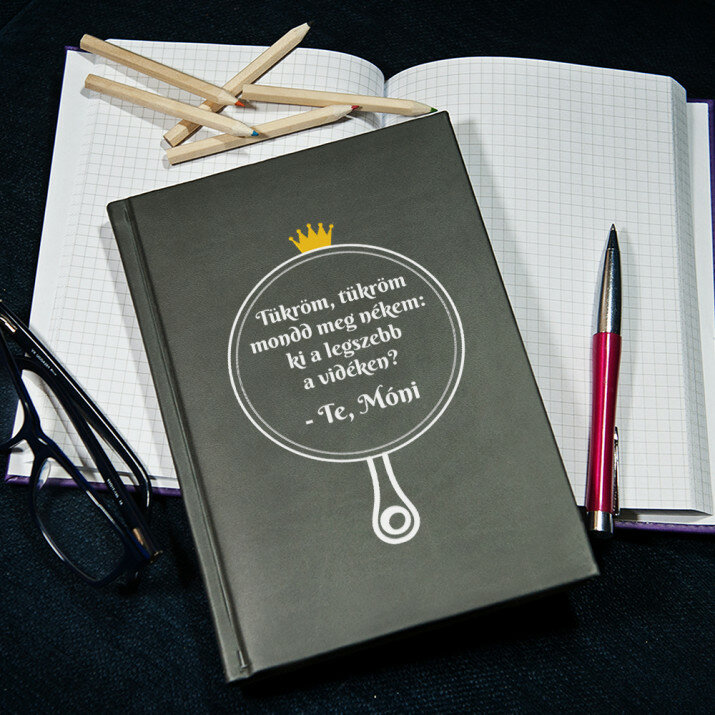 Tükröm, tükröm
mondd meg nékem:
ki a legszebb
a vidéken?
- Te, Móni